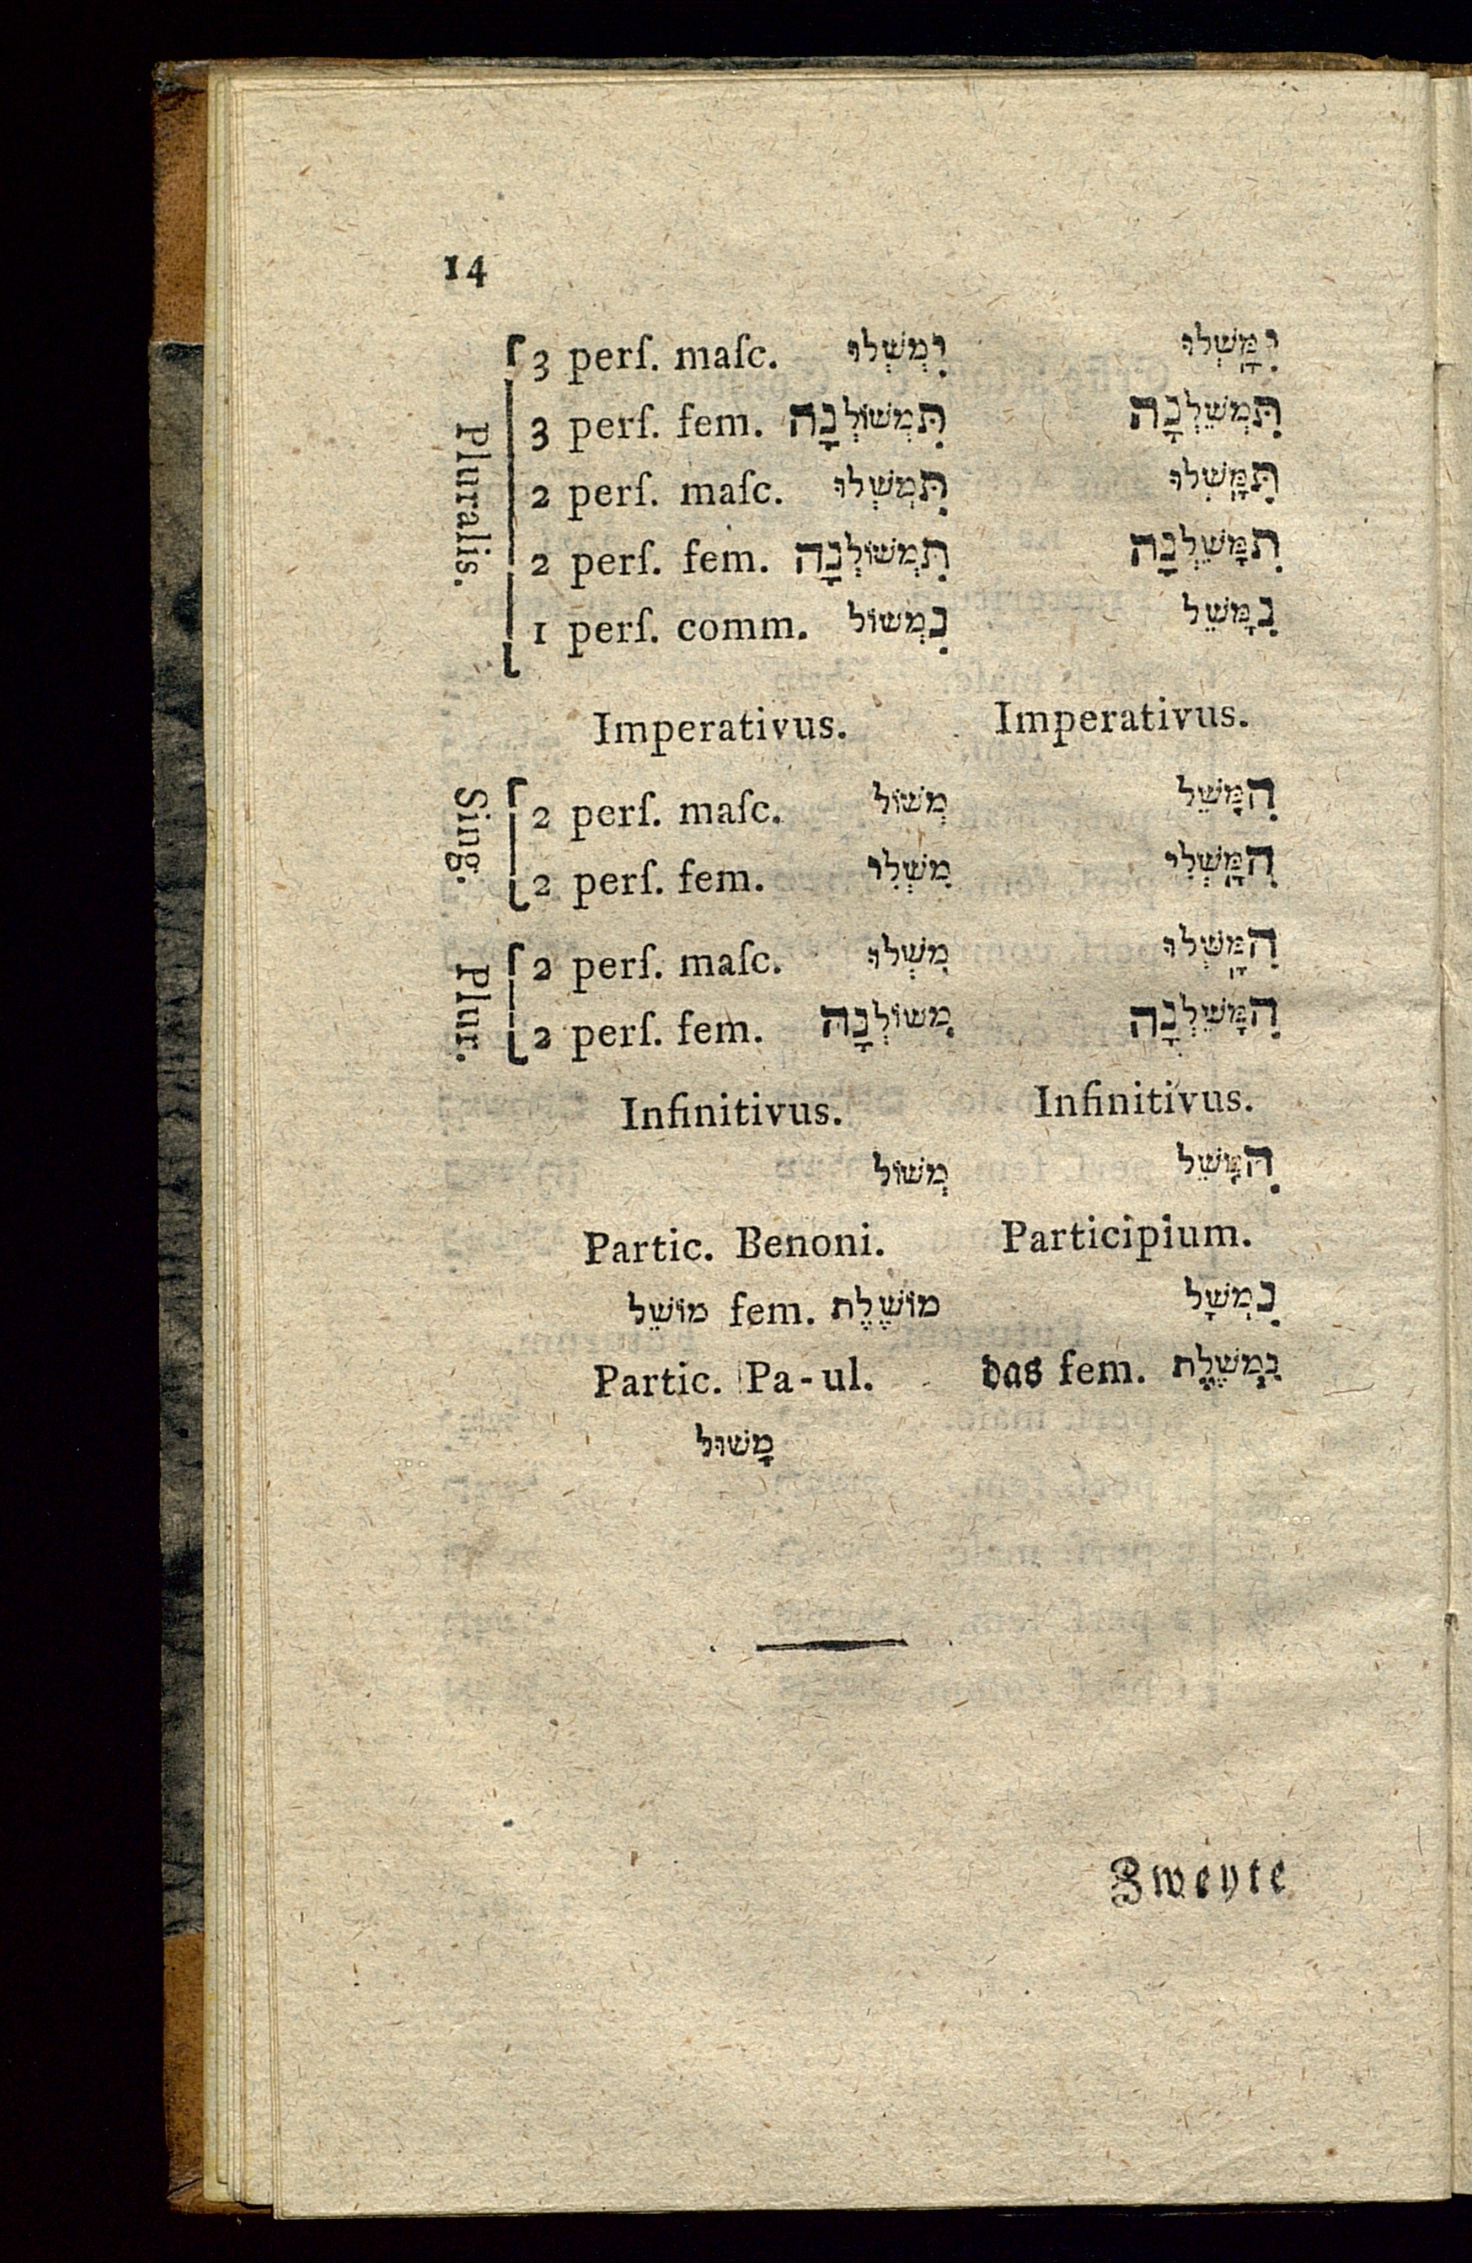 14
Pluralis.
3 perſ. maſc. יִמְשְׁלוּ יִמָּשְׁלוּ
3 perſ. fem. תִּמְשׁוֹלְנָה תִּמְשֵׁלְנָה
2 perſ. maſc. תִּמְשְׁלוּ תִּמָּשְׁלוּ
2 perſ. fem. תִּמְשׁוֹלְנָה תִמָּשֵׁלְנָה
1 perſ. comm. נִמְשׁוֹל נִמָּשֵׁל
Imperativus. Imperativus.
Sing.
2 perſ. maſc. מְשׁוֹל הִמָּשֵׁל
2 perſ. fem. מִשְׁלִי הִמָּשְׁלִי
Plur.
2 perſ. maſc. מִשְׁלוּ הִמָּשְׁלוּ
2 perſ. fem. מְשׁוֹלְנָה הִמָּשֵׁלְנָה
Infinitivus. Infinitivus.
מְשׁוֹל הִמָּשֵׁל
Partic. Benoni. Participium.
מוֹשֵׁל fem. מוֹשֶׁלֶת נִמְשָׁל
Partic. Pa-ul. das fem. נִמְשֶׁלֶת
מָשׁוּל
Zweyte